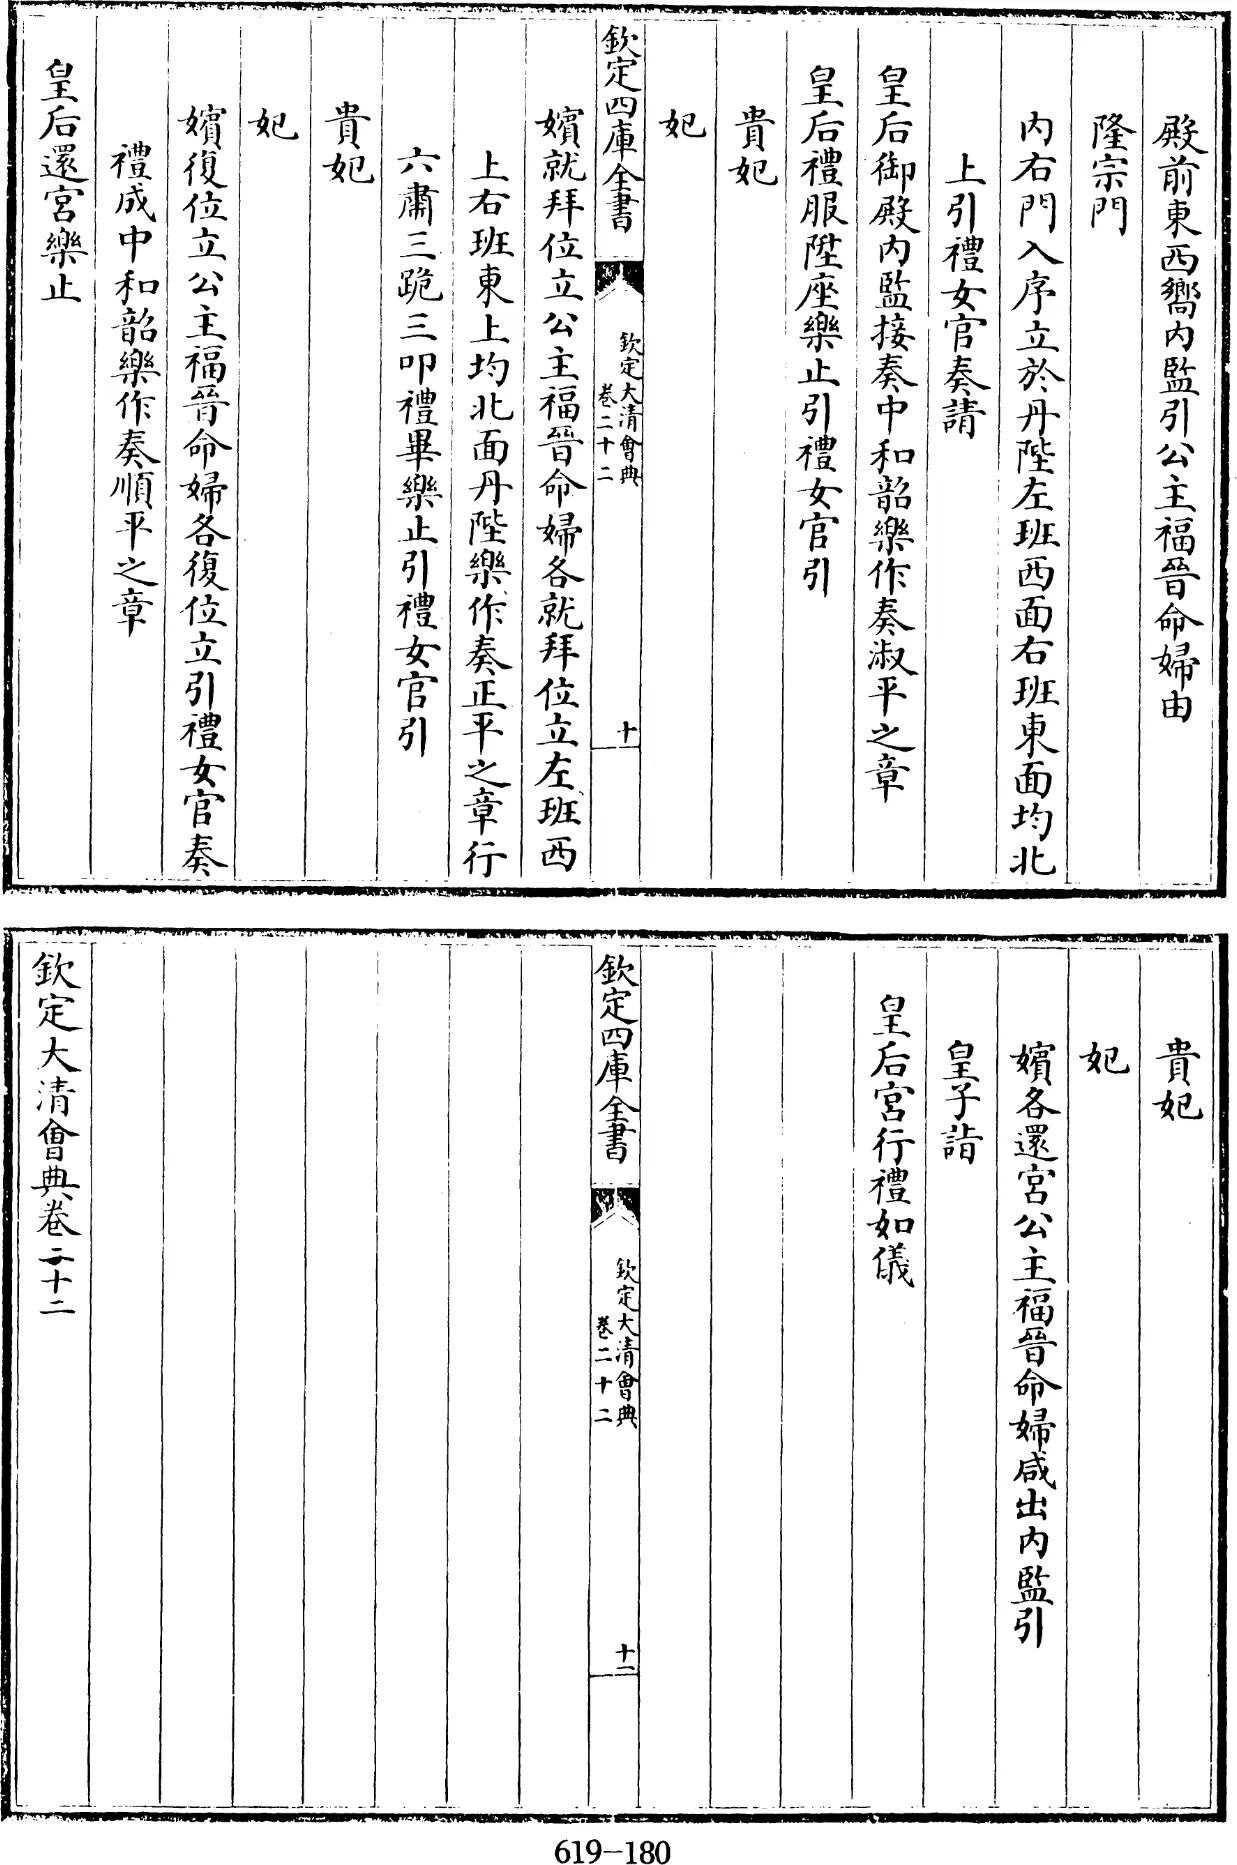 殿前東西嚮内監引公主福晉命婦由
隆宗門
内右門入序立於丹陛左班西面右班東面均北
上引禮女官奏請
皇后御殿内監接奏中和韶樂作奏淑平之章
皇后禮服陞座樂止引禮女官引
貴妃
妃
欽定四庫全書
欽定大清會典
卷二十二
十
嬪就拜位立公主福晉命婦各就拜位立左班西
上右班東上均北面丹陛樂作奏正平之章行
六肅三跪三叩禮畢樂止引禮女官引
貴妃
妃
嬪復位立公主福晉命婦各復位立引禮女官奏
禮成中和韶樂作奏順平之章
皇后還宮樂止
貴妃
妃
嬪各還宮公主福晉命婦咸出内監引
皇子詣
皇后宮行禮如儀
欽定四庫全書
欽定大清會典
卷二十二
十一
欽定大清會典卷二十二
619-180